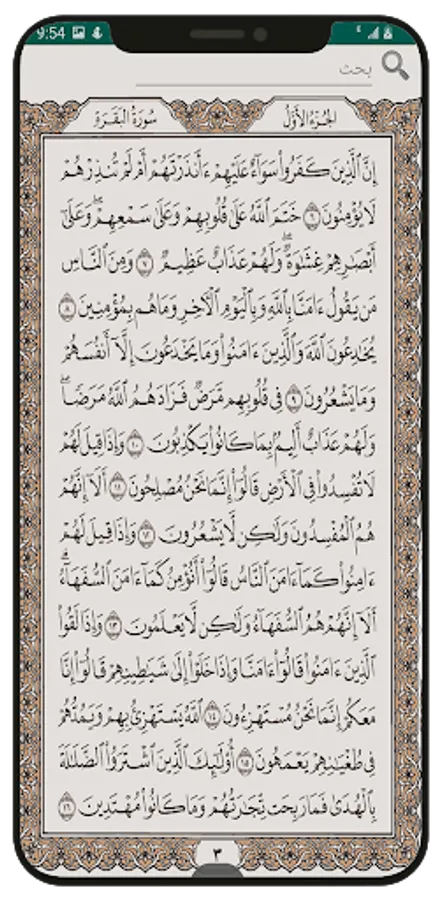 9:54
بحث
الجُزءُ الأَوَّلُ سُورَةُ البَقَرَةِ
إِنَّ ٱلَّذِينَ كَفَرُوا۟ سَوَآءٌ عَلَيْهِمْ ءَأَنذَرْتَهُمْ أَمْ لَمْ تُنذِرْهُمْ
لَا يُؤْمِنُونَ ٦ خَتَمَ ٱللَّهُ عَلَىٰ قُلُوبِهِمْ وَعَلَىٰ سَمْعِهِمْ ۖ وَعَلَىٰٓ
أَبْصَٰرِهِمْ غِشَٰوَةٌ ۖ وَلَهُمْ عَذَابٌ عَظِيمٌ ٧ وَمِنَ ٱلنَّاسِ
مَن يَقُولُ ءَامَنَّا بِٱللَّهِ وَبِٱلْيَوْمِ ٱلْءَاخِرِ وَمَا هُم بِمُؤْمِنِينَ ٨
يُخَٰدِعُونَ ٱللَّهَ وَٱلَّذِينَ ءَامَنُوا۟ وَمَا يَخْدَعُونَ إِلَّآ أَنفُسَهُمْ
وَمَا يَشْعُرُونَ ٩ فِى قُلُوبِهِم مَّرَضٌ فَزَادَهُمُ ٱللَّهُ مَرَضًا ۖ
وَلَهُمْ عَذَابٌ أَلِيمٌۢ بِمَا كَانُوا۟ يَكْذِبُونَ ١٠ وَإِذَا قِيلَ لَهُمْ
لَا تُفْسِدُوا۟ فِى ٱلْأَرْضِ قَالُوٓا۟ إِنَّمَا نَحْنُ مُصْلِحُونَ ١١ أَلَآ إِنَّهُمْ
هُمُ ٱلْمُفْسِدُونَ وَلَٰكِن لَّا يَشْعُرُونَ ١٢ وَإِذَا قِيلَ لَهُمْ
ءَامِنُوا۟ كَمَآ ءَامَنَ ٱلنَّاسُ قَالُوٓا۟ أَنُؤْمِنُ كَمَآ ءَامَنَ ٱلسُّفَهَآءُ ۗ
أَلَآ إِنَّهُمْ هُمُ ٱلسُّفَهَآءُ وَلَٰكِن لَّا يَعْلَمُونَ ١٣ وَإِذَا لَقُوا۟
ٱلَّذِينَ ءَامَنُوا۟ قَالُوٓا۟ ءَامَنَّا وَإِذَا خَلَوْا۟ إِلَىٰ شَيَٰطِينِهِمْ قَالُوٓا۟ إِنَّا
مَعَكُمْ إِنَّمَا نَحْنُ مُسْتَهْزِءُونَ ١٤ ٱللَّهُ يَسْتَهْزِئُ بِهِمْ وَيَمُدُّهُمْ
فِى طُغْيَٰنِهِمْ يَعْمَهُونَ ١٥ أُو۟لَٰٓئِكَ ٱلَّذِينَ ٱشْتَرَوُا۟ ٱلضَّلَٰلَةَ
بِٱلْهُدَىٰ فَمَا رَبِحَت تِّجَٰرَتُهُمْ وَمَا كَانُوا۟ مُهْتَدِينَ ١٦
٣